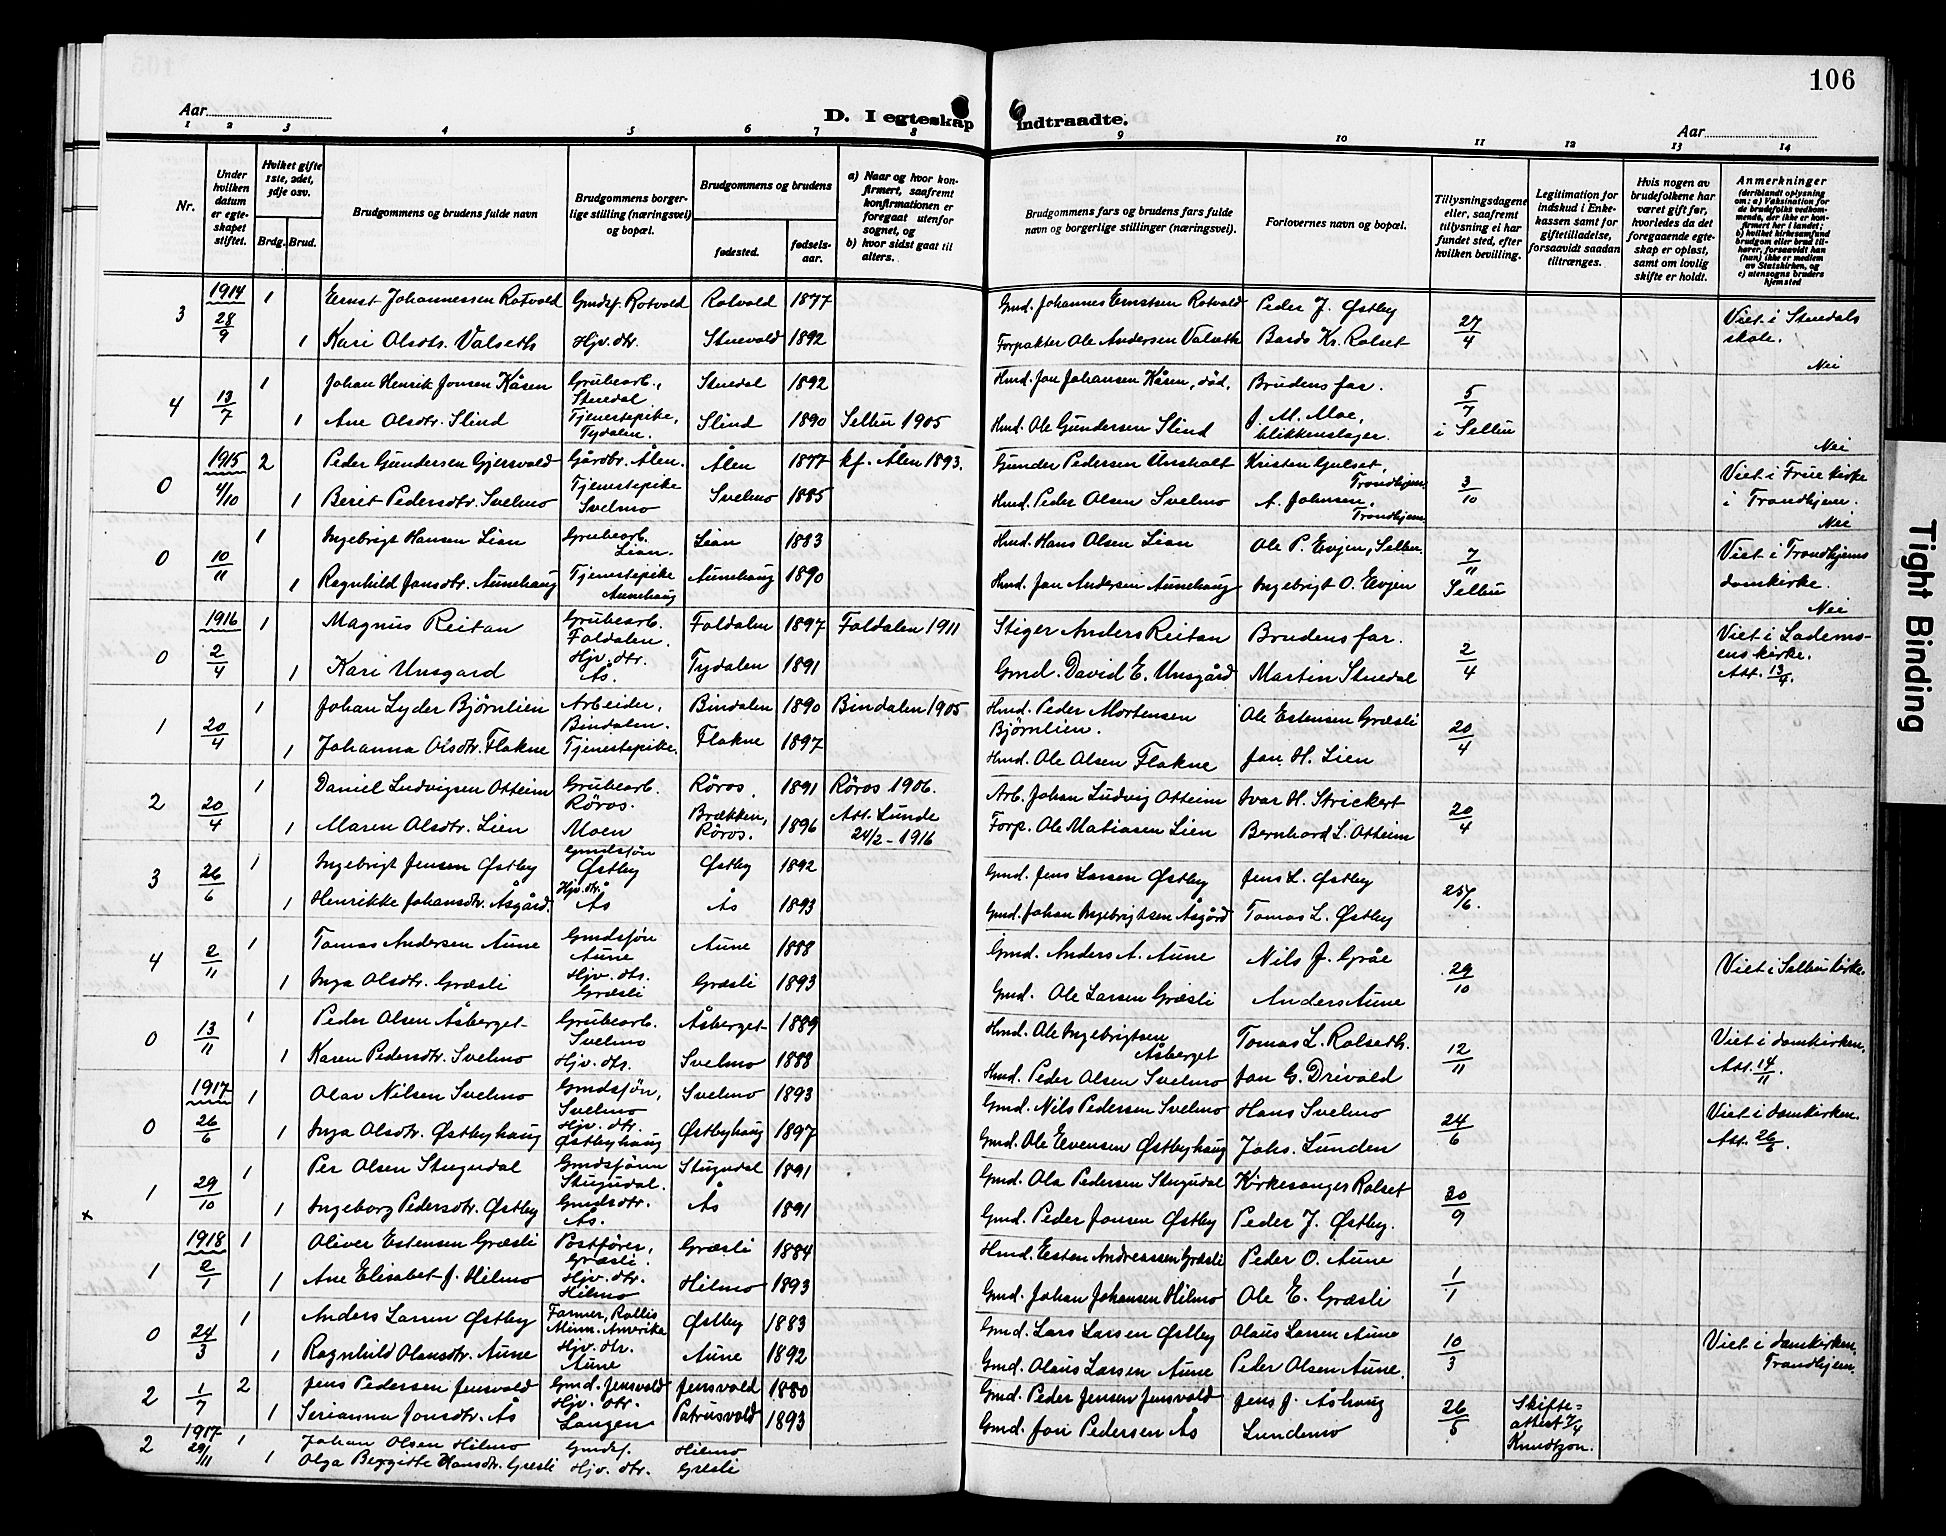 106
Aar
D. I egteskap indtraadte.
Aar
1 2 3 4 5 6 7 8 9 10 11 12 13 14
Nr.
Under hvilken datum er egte-skapet stiftet.
Hvilket gifte 1ste, 2det, 3dje osv.
Brdg. Brud.
Brudgommens og brudens fulde navn
Brudgommens borger-lige stilling (næringsvei) og bopæl.
Brudgommens og brudens
fødested.
fødsels-aar.
a) Naar og hvor kon-firmert, saafremt konfirmationen er foregaat utenfor sognet, og
b) hvor sidst gaat til alters.
Brudgommens fars og brudens fars fulde navn og borgerlige stillinger (næringsvei).
Forlovernes navn og bopæl.
Tillysningsdagene eller, saafremt tillysning ei har fundet sted, efter hvilken bevilling.
Legitimation for indskud i Enke-kassen samt for giftetilladelse, forsaavidt saadan tiltrænges.
Hvis nogen av brudefolkene har været gift før, hvorledes da det foregaaende egte-skap er opløst, samt om lovlig skifte er holdt.
Anmerkninger
(deriblandt oplysning om: a) Vaksination for de brudefolks vedkom-mende, der ikke er kon-firmert her i landet; b) hvilket kirkesamfund brudgom eller brud til-hører, forsaavidt han (hun) ikke er medlem av Statskirken, og c) utensogns bruders hjemsted
3 1914 28/9 1 Ernst Johannessen Rotvold Gmdsf. Rotvold Rotvold 1877 Gmd. Johannes Ernstsen Rotvold Peder J. Østby 27/4 Viet i Stuedals
1 Kari Olsdtr. Valseth Hjv. dtr. Stuevold 1892 Forpakter Ole Andersen Valseth Bards Kr. Rolset skole.
4 13/7 1 Johan Henrik Jonsen Kåsen Grubearb., Stuedal Stuedal 1892 Hmd. Jon Johansen Kåsen, død. Brudens far. 5/7 i Selbu Nei
1 Ane Olsdtr. Slind Tjenestepike, Tydalen. Slind 1890 Selbu 1905 Hmd. Ole Gundersen Slind J. M. Moe, blikkenslager.
0 1915 4/10 2 Peder Gundersen Gjersvold Gårdbr. Ålen. Ålen 1877 kf. Ålen 1893. Gunder Pedersen Unsholt Kristen Gulset, Trondhjem 3/10 Nei Viet i Frue kirke
1 Berit Pedersdtr. Svelmo Tjenestepike Svelmo Svelmo 1885 Hmd. Peder Olsen Svelmo A. Johnsen, Trondhjem i Trondhjem.
0 10/11 1 Ingebrigt Hansen Lian Grubearb. Lian. Lian 1883 Hmd. Hans Olsen Lian Ole P. Evjen, Selbu. 7/11 Selbu Nei Viet i Trondhjems
1 Ragnhild Jonsdtr. Aunehaug Tjenestepike Aunehaug Aunehaug 1890 Hmd. Jon Andersen Aunehaug Ingebrigt O. Evjen domkirke.
0 1916 2/4 1 Magnus Reitan Grubearb. Foldalen. Foldalen 1897 Foldalen 1911 Stiger Anders Reitan Brudens far. 2/4 Nei Viet i Lademo-
1 Kari Unsgard Hjv. dtr. Ås. Tydalen 1891 Gmd. David E. Unsgård Martin Stuedal ens kirke. Att. 13/4.
1 20/4 1 Johan Lyder Bjørnlien Arbeider, Bindalen. Bindalen 1890 Bindalen 1905 Hmd. Peder Mortensen Bjørnlien. Ole Estensen Græsli 20/4
1 Johanna Olsdtr. Flakne Tjenestepike. Flakne 1897 Hmd. Ole Olsen Flakne Jon H. Lien
2 20/4 1 Daniel Ludvigsen Otteim Grubearb. Röros. Röros. 1891 Röros 1906. Arb. Johan Ludvig Otteim Ivar H. Strickert 20/4
1 Maren Olsdtr. Lien Moen Brækken, Röros. 1896 Att. Lunde 24/2 - 1916 Forp. Ole Matiasen Lien Bernhard L. Otteim
3 26/6 1 Ingebrigt Jensen Østby Gmdsføn Østby Østby 1892 Gmd. Jens Larsen Østby Jens L. Østby 25/6.
1 Henrikke Johansdtr. Åsgård. Hjv. dtr. Ås Ås 1893 Gmd. Johan Ingebrigtsen Åsgård Tomas L. Østby
4 2/11 1 Tomas Andersen Aune Gmdsføn Aune Aune 1888 Gmd. Anders A. Aune Nils J. Gråe 29/10 Viet i Selbu kirke.
1 Inga Olsdtr. Græsli Hjv. dtr. Græsli Græsli 1893 Gmd. Ole Larsen Græsli Anders Aune
0 13/11 1 Peder Olsen Åsberget Grubearb. Svelmo Åsberget 1889 Hmd. Ole Ingebrigtsen Åsberget Tomas L. Rolseth. 12/11 Viet i domkirken.
1 Karen Pedersdtr. Svelmo Hjv. dtr. Svelmo 1888 Hmd. Peder Olsen Svelmo Jon G. Drivold Att. 14/11.
0 1917 26/6 1 Olav Nilsen Svelmo Gmdsføn, Svelmo Svelmo 1893 Gmd. Nils Pedersen Svelmo Hans Svelmo 24/6 Viet i domkirken.
1 Inga Olsdtr. Østbyhaug Hjv. dtr. Østbyhaug Østbyhaug 1897 Gmd. Ole Evensen Østbyhaug Johs. Lunden Att. 26/6.
1 29/10 1 Per Olsen Stugudal Gmdsfønn Stugudal. Stugudal 1891 Gmd. Ola Pedersen Stugudal Kirkesanger Rolset 30/9
x 1 Ingeborg Pedersdtr. Østby Gmdsdtr. Ås. Ås 1891 Gmd. Peder Jonsen Østby Peder J. Østby.
1 1918 2/1 1 Oliver Estensen Græsli Postfører, Græsli. Græsli 1884 Hmd. Esten Andreassen Græsli Peder O. Aune 1/1
1 Ane Elisabet J. Hilmo Hjv. dtr. Hilmo Hilmo 1893 Gmd. Johan Johansen Hilmo Ole E. Græsli
0 24/3 1 Anders Larsen Østby Farmer, Rollis Minn. Amerika Østby 1883 Gmd. Lars Larsen Østby Olaus Larsen Aune 10/3 Viet i domkirken,
1 Ragnhild Olausdtr. Aune Hjv. dtr. Aune Aune 1892 Gmd. Olaus Larsen Aune Peder Olsen Aune. Trondhjem.
2 1/7 2 Jens Pedersen Jensvold Gmd. Jensvold Jensvold 1880 Gmd. Peder Jensen Jensvold Jens J. Åshaug 26/5 Skifte= attest 7/4 Knudtzon.
1 Serianna Jonsdtr. Ås Hjv. dtr. Langen Patrusvold 1893 Gmd. Jon Pedersen Ås Lundemo
2 1917 29/11 1 Johan Olsen Hilmo Gmdsf. Hilmo
1 Olga Bergitte Hansdtr. Græsli Hjv. dtr. Græsli
Tight Binding